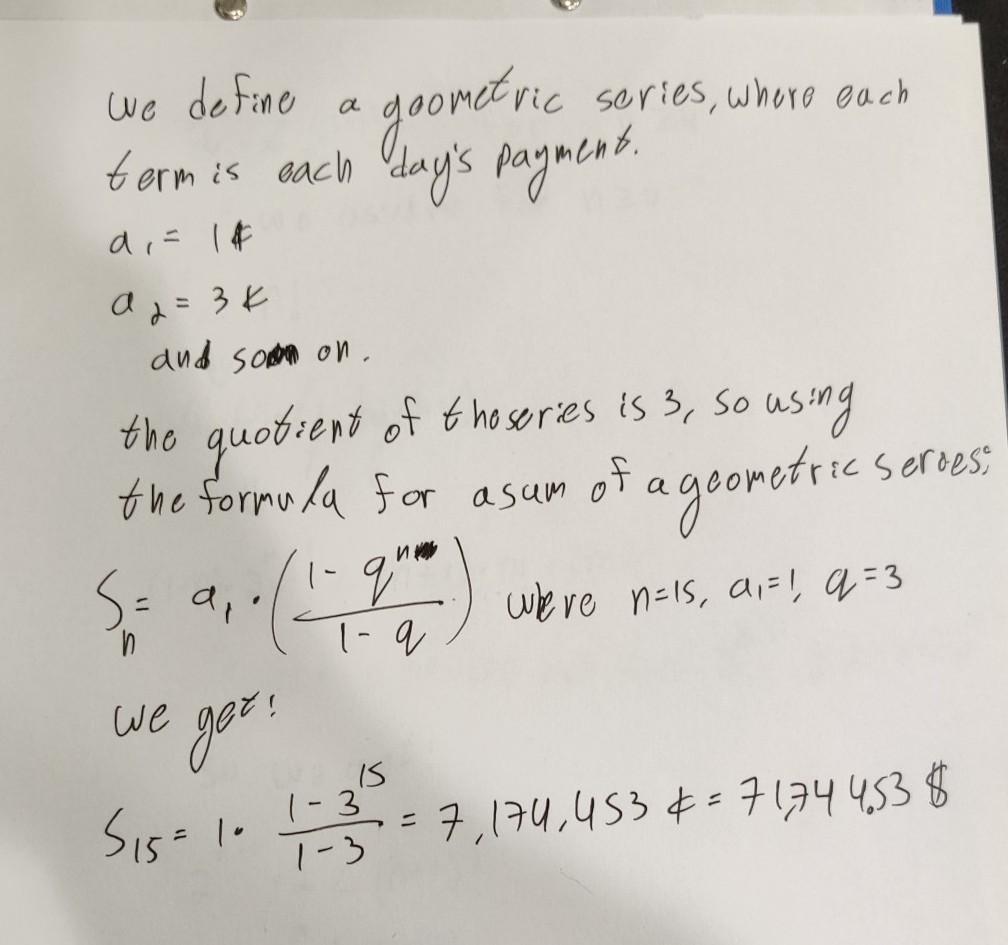 we define a goometric series, where each
term is each day's payment.
a₁ = 1¢
a₂ = 3¢
and so on.
the quotient of the series is 3, so using
the formula for a sum of a geometric series:
Sₙ = a₁ · ((1 - qⁿ)/(1 - q)) where n=15, a₁=1, q=3
we get:
S₁₅ = 1 · (1 - 3¹⁵)/(1 - 3) = 7,174,453 ¢ = 71,744.53 $